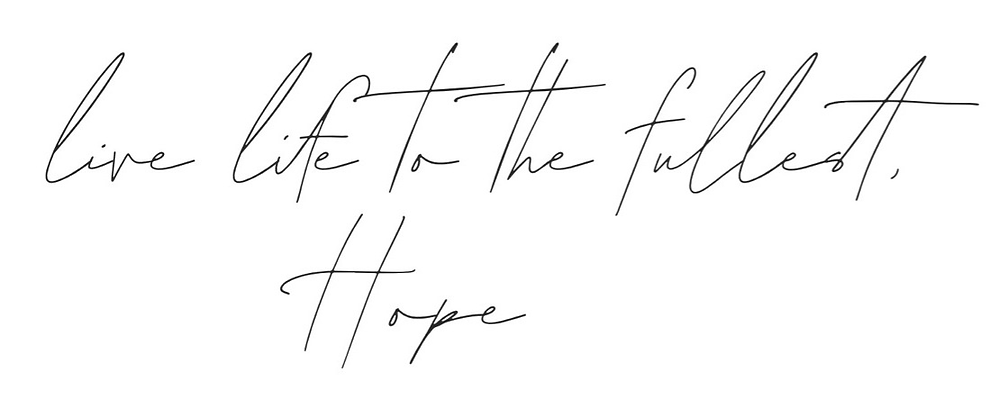 live life to the fullest,
Hope